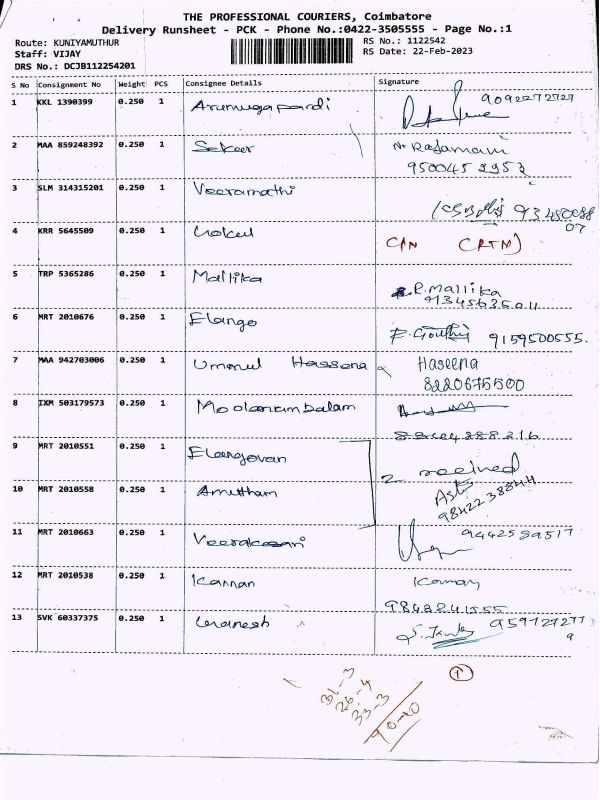 THE PROFESSIONAL COURIERS, Coimbatore
Delivery Runsheet - PCK - Phone No.:0422-3505555 - Page No.:1
Route: KUNIYAMUTHUR RS No.: 1122542
Staff: VIJAY RS Date: 22-Feb-2023
DRS No.: DCJB112254201
S No Consignment No Weight PCS Consignee Details Signature
1 KKL 1390399 0.250 1 Arumugapandi
2 MAA 859248392 0.250 1 Sekar Rajamani
3 SLM 314315201 0.250 1 Veeramathi
4 KRR 5645509 0.250 1 Gokul C/N (RTN)
5 TRP 5365286 0.250 1 Mallika P.Mallika
6 MRT 2010676 0.250 1 Elango 9159500555.
7 MAA 942703006 0.250 1 Ummul Hassena Haseena
8220675500
8 IXM 503179573 0.250 1
9 MRT 2010551 0.250 1 Elangovan 2 received
10 MRT 2010558 0.250 1 Amutham 9842238844
11 MRT 2010663 0.250 1 9442589517
12 MRT 2010538 0.250 1 Kannan
13 SVK 60337375 0.250 1 Ganesh
1
31-3
26-4
33-3
90-10